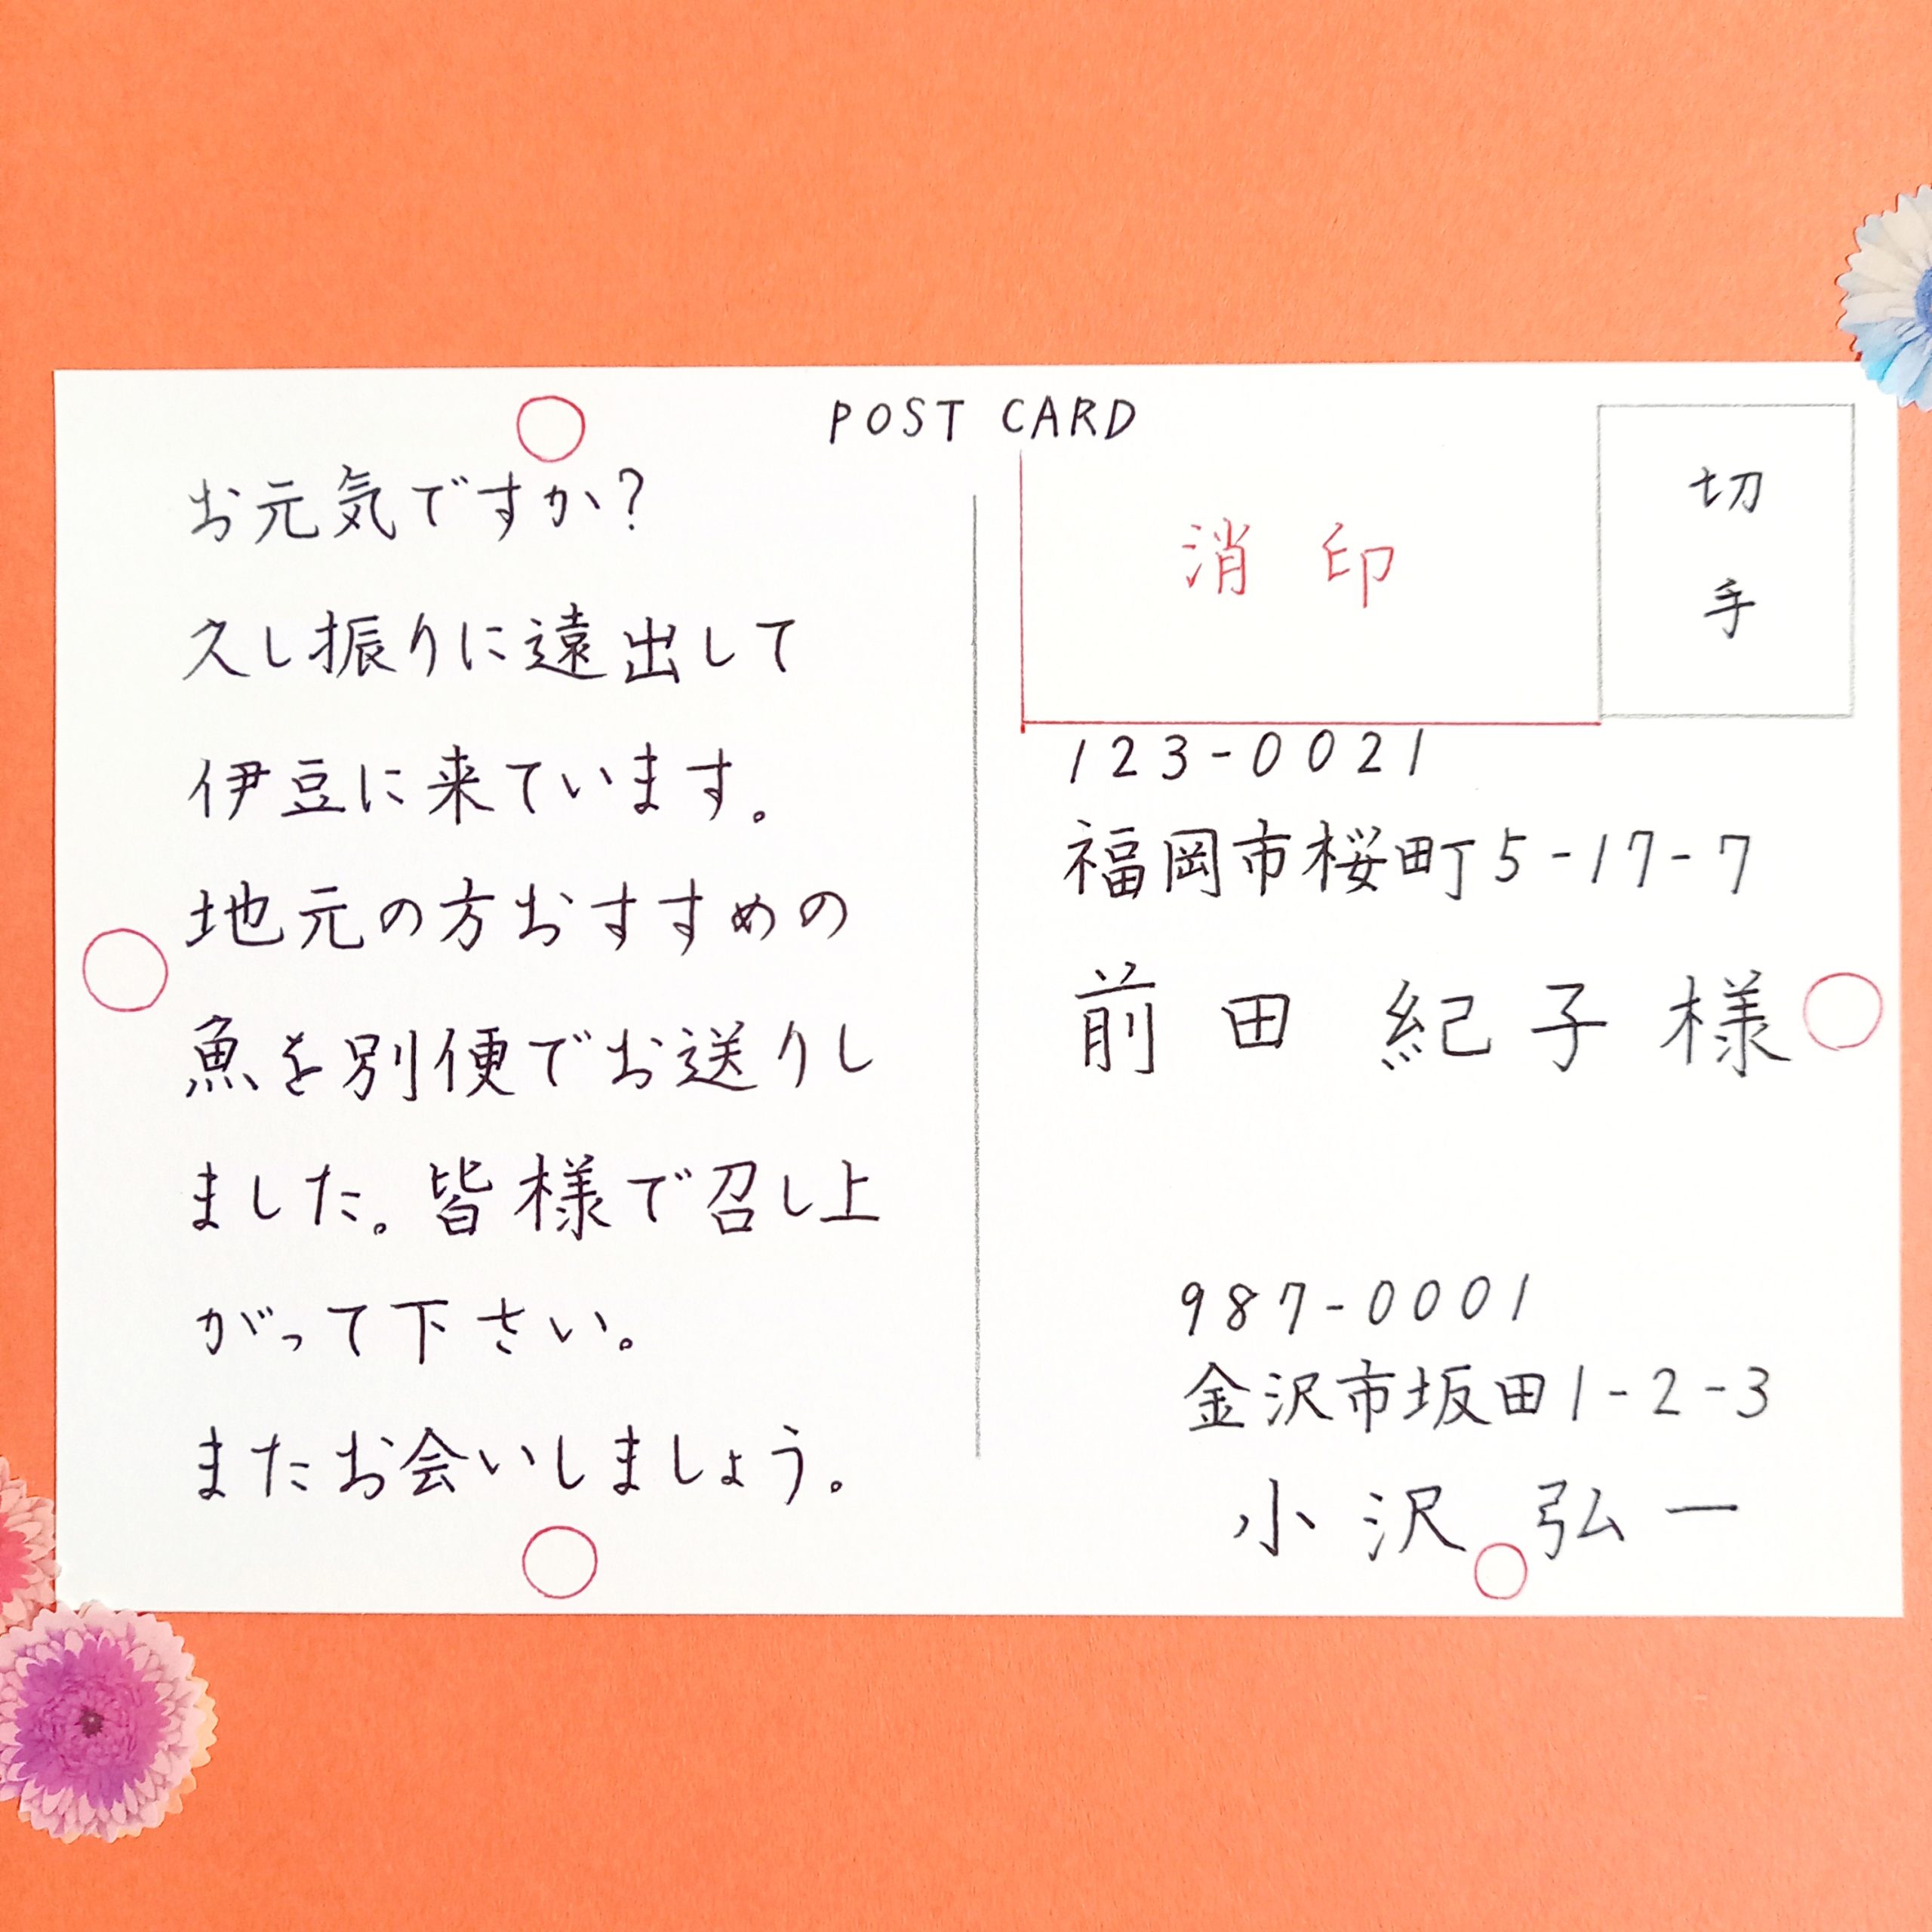 POST CARD
お元気ですか?
久し振りに遠出して
伊豆に来ています。
地元の方おすすめの
魚を別便でお送りし
ました。皆様で召し上
がって下さい。
またお会いしましょう。
消印
切
手
123-0021
福岡市桜町5-17-7
前田 紀子様
987-0001
金沢市坂田1-2-3
小沢 弘一